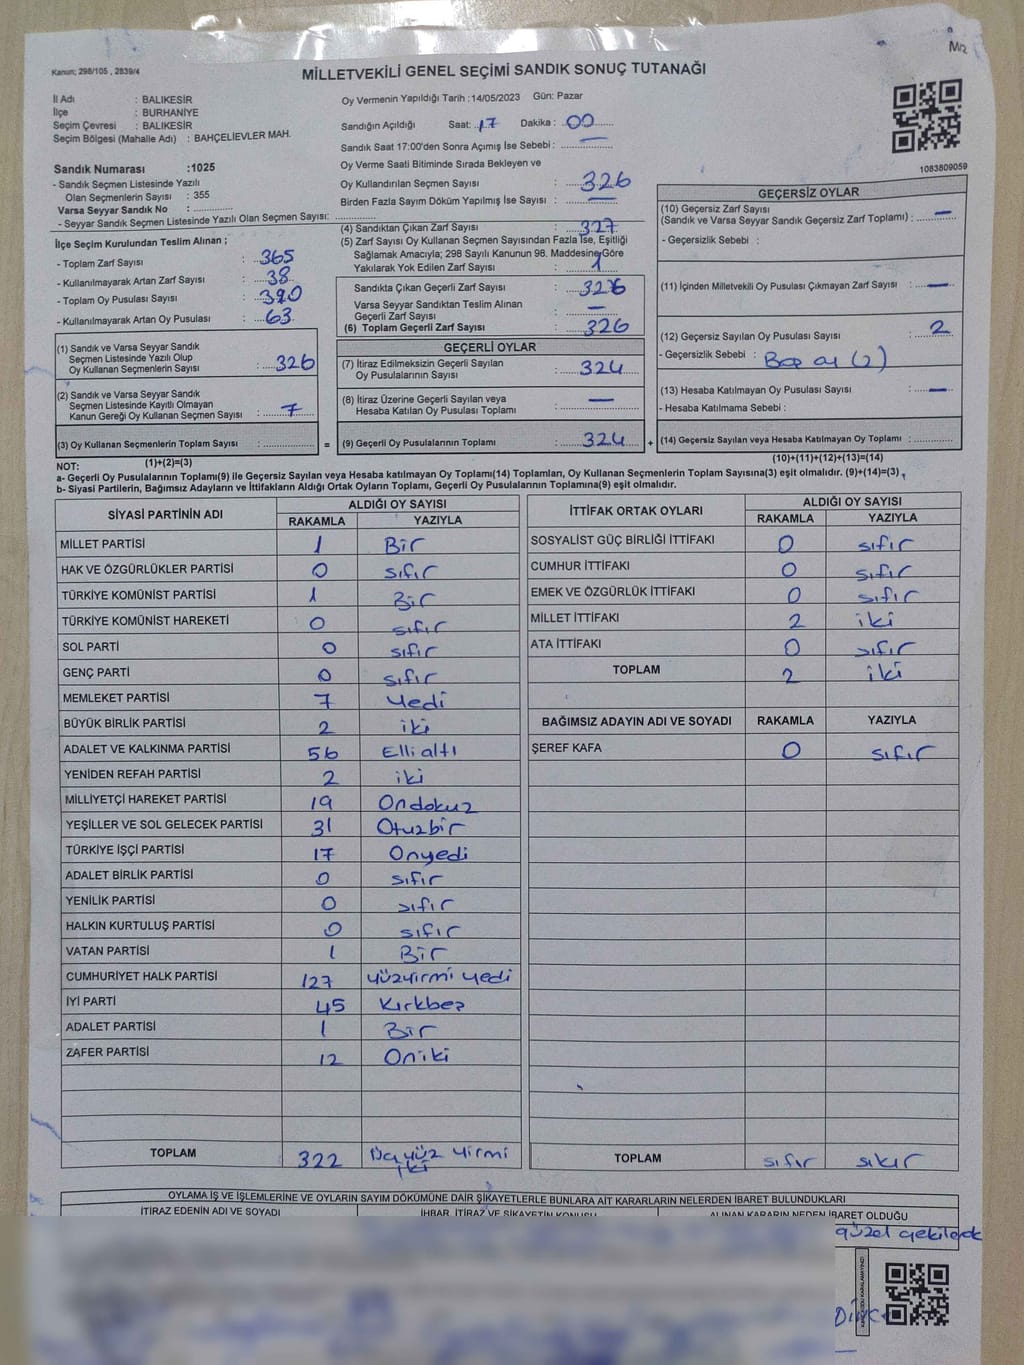 Kanun; 298/105 , 2839/4
MİLLETVEKİLİ GENEL SEÇİMİ SANDIK SONUÇ TUTANAĞI
İl Adı : BALIKESİR
İlçe : BURHANİYE
Seçim Çevresi : BALIKESİR
Seçim Bölgesi (Mahalle Adı) : BAHÇELİEVLER MAH.
Sandık Numarası :1025
- Sandık Seçmen Listesinde Yazılı
Olan Seçmenlerin Sayısı : 355
Varsa Seyyar Sandık No :
- Seyyar Sandık Seçmen Listesinde Yazılı Olan Seçmen Sayısı:
Oy Vermenin Yapıldığı Tarih :14/05/2023 Gün: Pazar
Sandığın Açıldığı Saat: 17 Dakika : 00
Sandık Saat 17:00'den Sonra Açımış İse Sebebi :
Oy Verme Saati Bitiminde Sırada Bekleyen ve
Oy Kullandırılan Seçmen Sayısı : 326
Birden Fazla Sayım Döküm Yapılmış İse Sayısı : —
1083809059
İlçe Seçim Kurulundan Teslim Alınan ;
- Toplam Zarf Sayısı : 365
- Kullanılmayarak Artan Zarf Sayısı : 38
- Toplam Oy Pusulası Sayısı : 390
- Kullanılmayarak Artan Oy Pusulası : 63
(1) Sandık ve Varsa Seyyar Sandık
Seçmen Listesinde Yazılı Olup
Oy Kullanan Seçmenlerin Sayısı : 326
(2) Sandık ve Varsa Seyyar Sandık
Seçmen Listesinde Kayıtlı Olmayan
Kanun Gereği Oy Kullanan Seçmen Sayısı : 7
(3) Oy Kullanan Seçmenlerin Toplam Sayısı :
(1)+(2)=(3)
(4) Sandıktan Çıkan Zarf Sayısı : 327
(5) Zarf Sayısı Oy Kullanan Seçmen Sayısından Fazla İse, Eşitliği
Sağlamak Amacıyla; 298 Sayılı Kanunun 98. Maddesine Göre
Yakılarak Yok Edilen Zarf Sayısı : 1
Sandıkta Çıkan Geçerli Zarf Sayısı : 326
Varsa Seyyar Sandıktan Teslim Alınan
Geçerli Zarf Sayısı :
(6) Toplam Geçerli Zarf Sayısı : 326
GEÇERLİ OYLAR
(7) İtiraz Edilmeksizin Geçerli Sayılan
Oy Pusulalarının Sayısı : 324
(8) İtiraz Üzerine Geçerli Sayılan veya
Hesaba Katılan Oy Pusulası Toplamı : —
= (9) Geçerli Oy Pusulalarının Toplamı : 324 +
GEÇERSİZ OYLAR
(10) Geçersiz Zarf Sayısı
(Sandık ve Varsa Seyyar Sandık Geçersiz Zarf Toplamı) : —
- Geçersizlik Sebebi :
(11) İçinden Milletvekili Oy Pusulası Çıkmayan Zarf Sayısı : —
(12) Geçersiz Sayılan Oy Pusulası Sayısı : 2
- Geçersizlik Sebebi : Boş oy (2)
(13) Hesaba Katılmayan Oy Pusulası Sayısı : —
- Hesaba Katılmama Sebebi :
(14) Geçersiz Sayılan veya Hesaba Katılmayan Oy Toplamı :
(10)+(11)+(12)+(13)=(14)
NOT:
a- Geçerli Oy Pusulalarının Toplamı(9) ile Geçersiz Sayılan veya Hesaba katılmayan Oy Toplamı(14) Toplamları, Oy Kullanan Seçmenlerin Toplam Sayısına(3) eşit olmalıdır. (9)+(14)=(3) ,
b- Siyasi Partilerin, Bağımsız Adayların ve İttifakların Aldığı Ortak Oyların Toplamı, Geçerli Oy Pusulalarının Toplamına(9) eşit olmalıdır.
SİYASİ PARTİNİN ADI ALDIĞI OY SAYISI
RAKAMLA YAZIYLA
MİLLET PARTİSİ 1 Bir
HAK VE ÖZGÜRLÜKLER PARTİSİ 0 sıfır
TÜRKİYE KOMÜNİST PARTİSİ 1 Bir
TÜRKİYE KOMÜNİST HAREKETİ 0 sıfır
SOL PARTİ 0 sıfır
GENÇ PARTİ 0 sıfır
MEMLEKET PARTİSİ 7 Yedi
BÜYÜK BİRLİK PARTİSİ 2 iki
ADALET VE KALKINMA PARTİSİ 56 Elli altı
YENİDEN REFAH PARTİSİ 2 iki
MİLLİYETÇİ HAREKET PARTİSİ 19 Ondokuz
YEŞİLLER VE SOL GELECEK PARTİSİ 31 Otuzbir
TÜRKİYE İŞÇİ PARTİSİ 17 Onyedi
ADALET BİRLİK PARTİSİ 0 sıfır
YENİLİK PARTİSİ 0 sıfır
HALKIN KURTULUŞ PARTİSİ 0 sıfır
VATAN PARTİSİ 1 Bir
CUMHURİYET HALK PARTİSİ 127 yüzyirmi yedi
İYİ PARTİ 45 Kırkbeş
ADALET PARTİSİ 1 Bir
ZAFER PARTİSİ 12 Oniki
TOPLAM 322 Üçyüz yirmi
iki
İTTİFAK ORTAK OYLARI ALDIĞI OY SAYISI
RAKAMLA YAZIYLA
SOSYALİST GÜÇ BİRLİĞİ İTTİFAKI 0 sıfır
CUMHUR İTTİFAKI 0 sıfır
EMEK VE ÖZGÜRLÜK İTTİFAKI 0 sıfır
MİLLET İTTİFAKI 2 iki
ATA İTTİFAKI 0 sıfır
TOPLAM 2 iki
BAĞIMSIZ ADAYIN ADI VE SOYADI RAKAMLA YAZIYLA
ŞEREF KAFA 0 sıfır
TOPLAM sıfır sıfır
OYLAMA İŞ VE İŞLEMLERİNE VE OYLARIN SAYIM DÖKÜMÜNE DAİR ŞİKAYETLERLE BUNLARA AİT KARARLARIN NELERDEN İBARET BULUNDUKLARI
İTİRAZ EDENİN ADI VE SOYADI İHBAR, İTİRAZ VE ŞİKAYETİN KONUSU ALINAN KARARIN NEDEN İBARET OLDUĞU
güzel